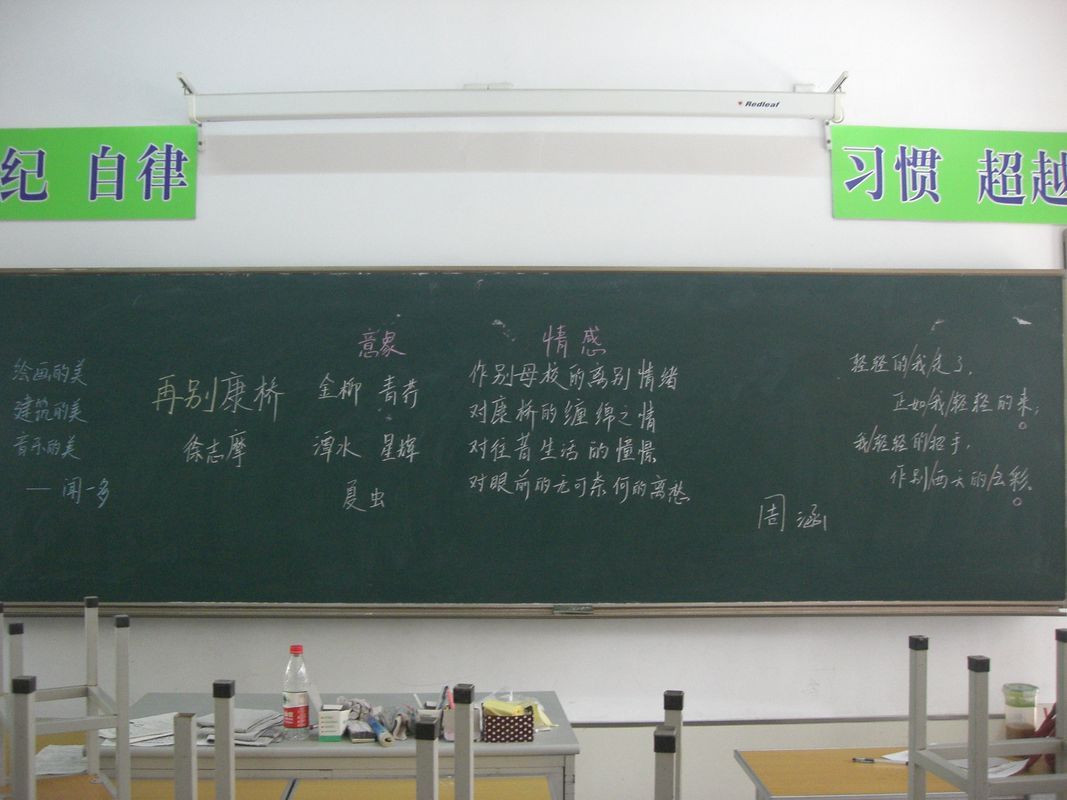 Redleaf
纪 自律
习惯 超越
绘画的美
建筑的美
音乐的美
——闻一多
再别康桥
徐志摩
意象
金柳 青荇
潭水 星辉
夏虫
情感
作别母校的离别情绪
对康桥的缠绵之情
对往昔生活的憧憬
对眼前的无可奈何的离愁
周涵
轻轻的/我/走了,
正如/我/轻轻的/来;
我/轻轻的/招手,
作别/西天的/云彩。